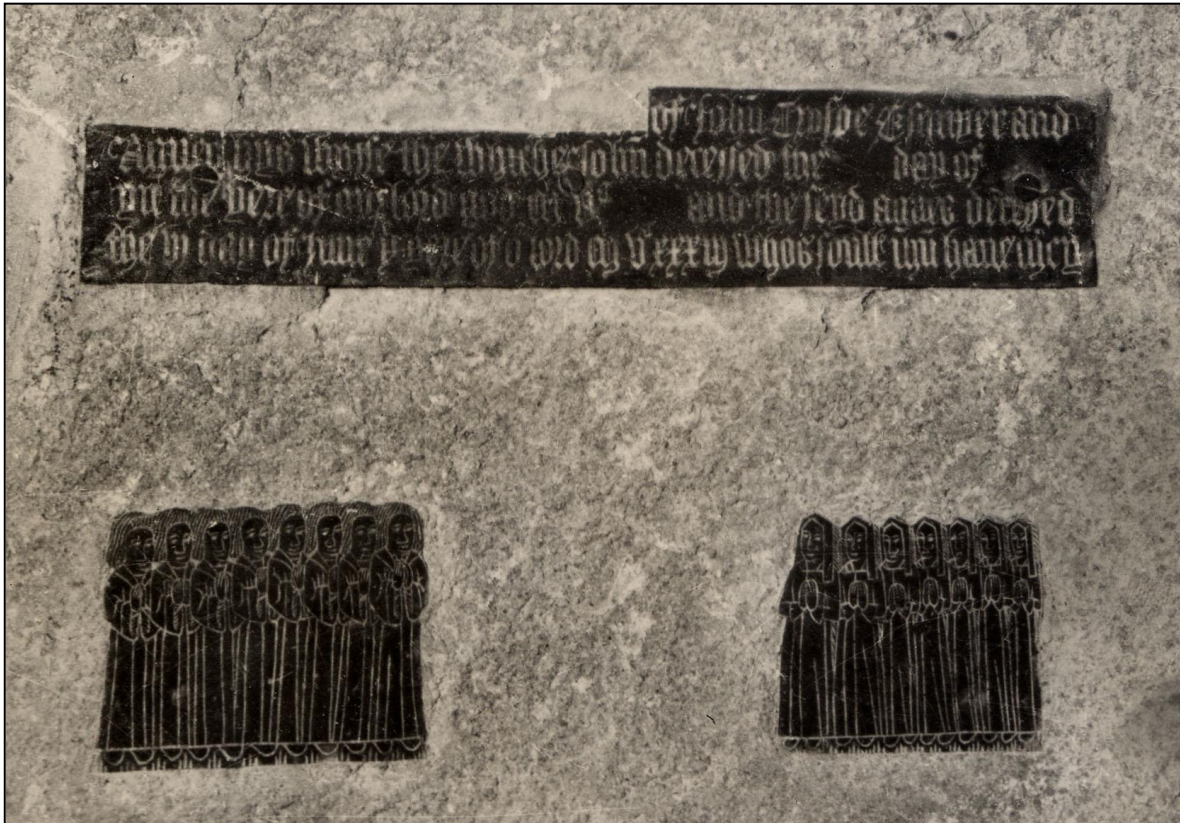 of John Esquyer and
Agnes his wyffe the whyche John decessed the day of
yn the yere of our lord and the seyd agnes decessed
the day of June yere of o lord xxxiij whos soull ihu have mcy